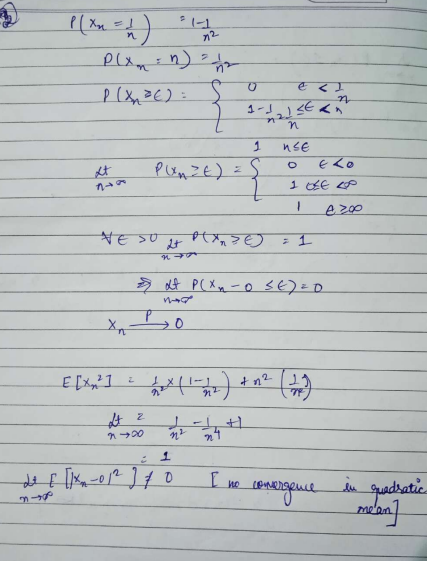 P(Xn = 1/n) = 1 - 1/n²
P(Xn = n) = 1/n²
P(Xn ≥ ε) = { 0 ε < 1/n
1 - 1/n² 1/n ≤ ε < n
1 n ≤ ε
lt n→∞ P(Xn ≥ ε) = { 0 ε < 0
1 0 ≤ ε < ∞
1 ε ≥ ∞
∀ ε > 0 lt n→∞ P(Xn ≥ ε) = 1
⇒ lt n→∞ P(Xn - 0 ≤ ε) = 0
Xn –P→ 0
E[Xn²] = 1/n² × (1 - 1/n²) + n² (1/n²)
lt n→∞ = 1/n² - 1/n⁴ + 1
= 1
lt n→∞ E[|Xn - 0|²] ≠ 0 [no convergence in quadratic
mean]